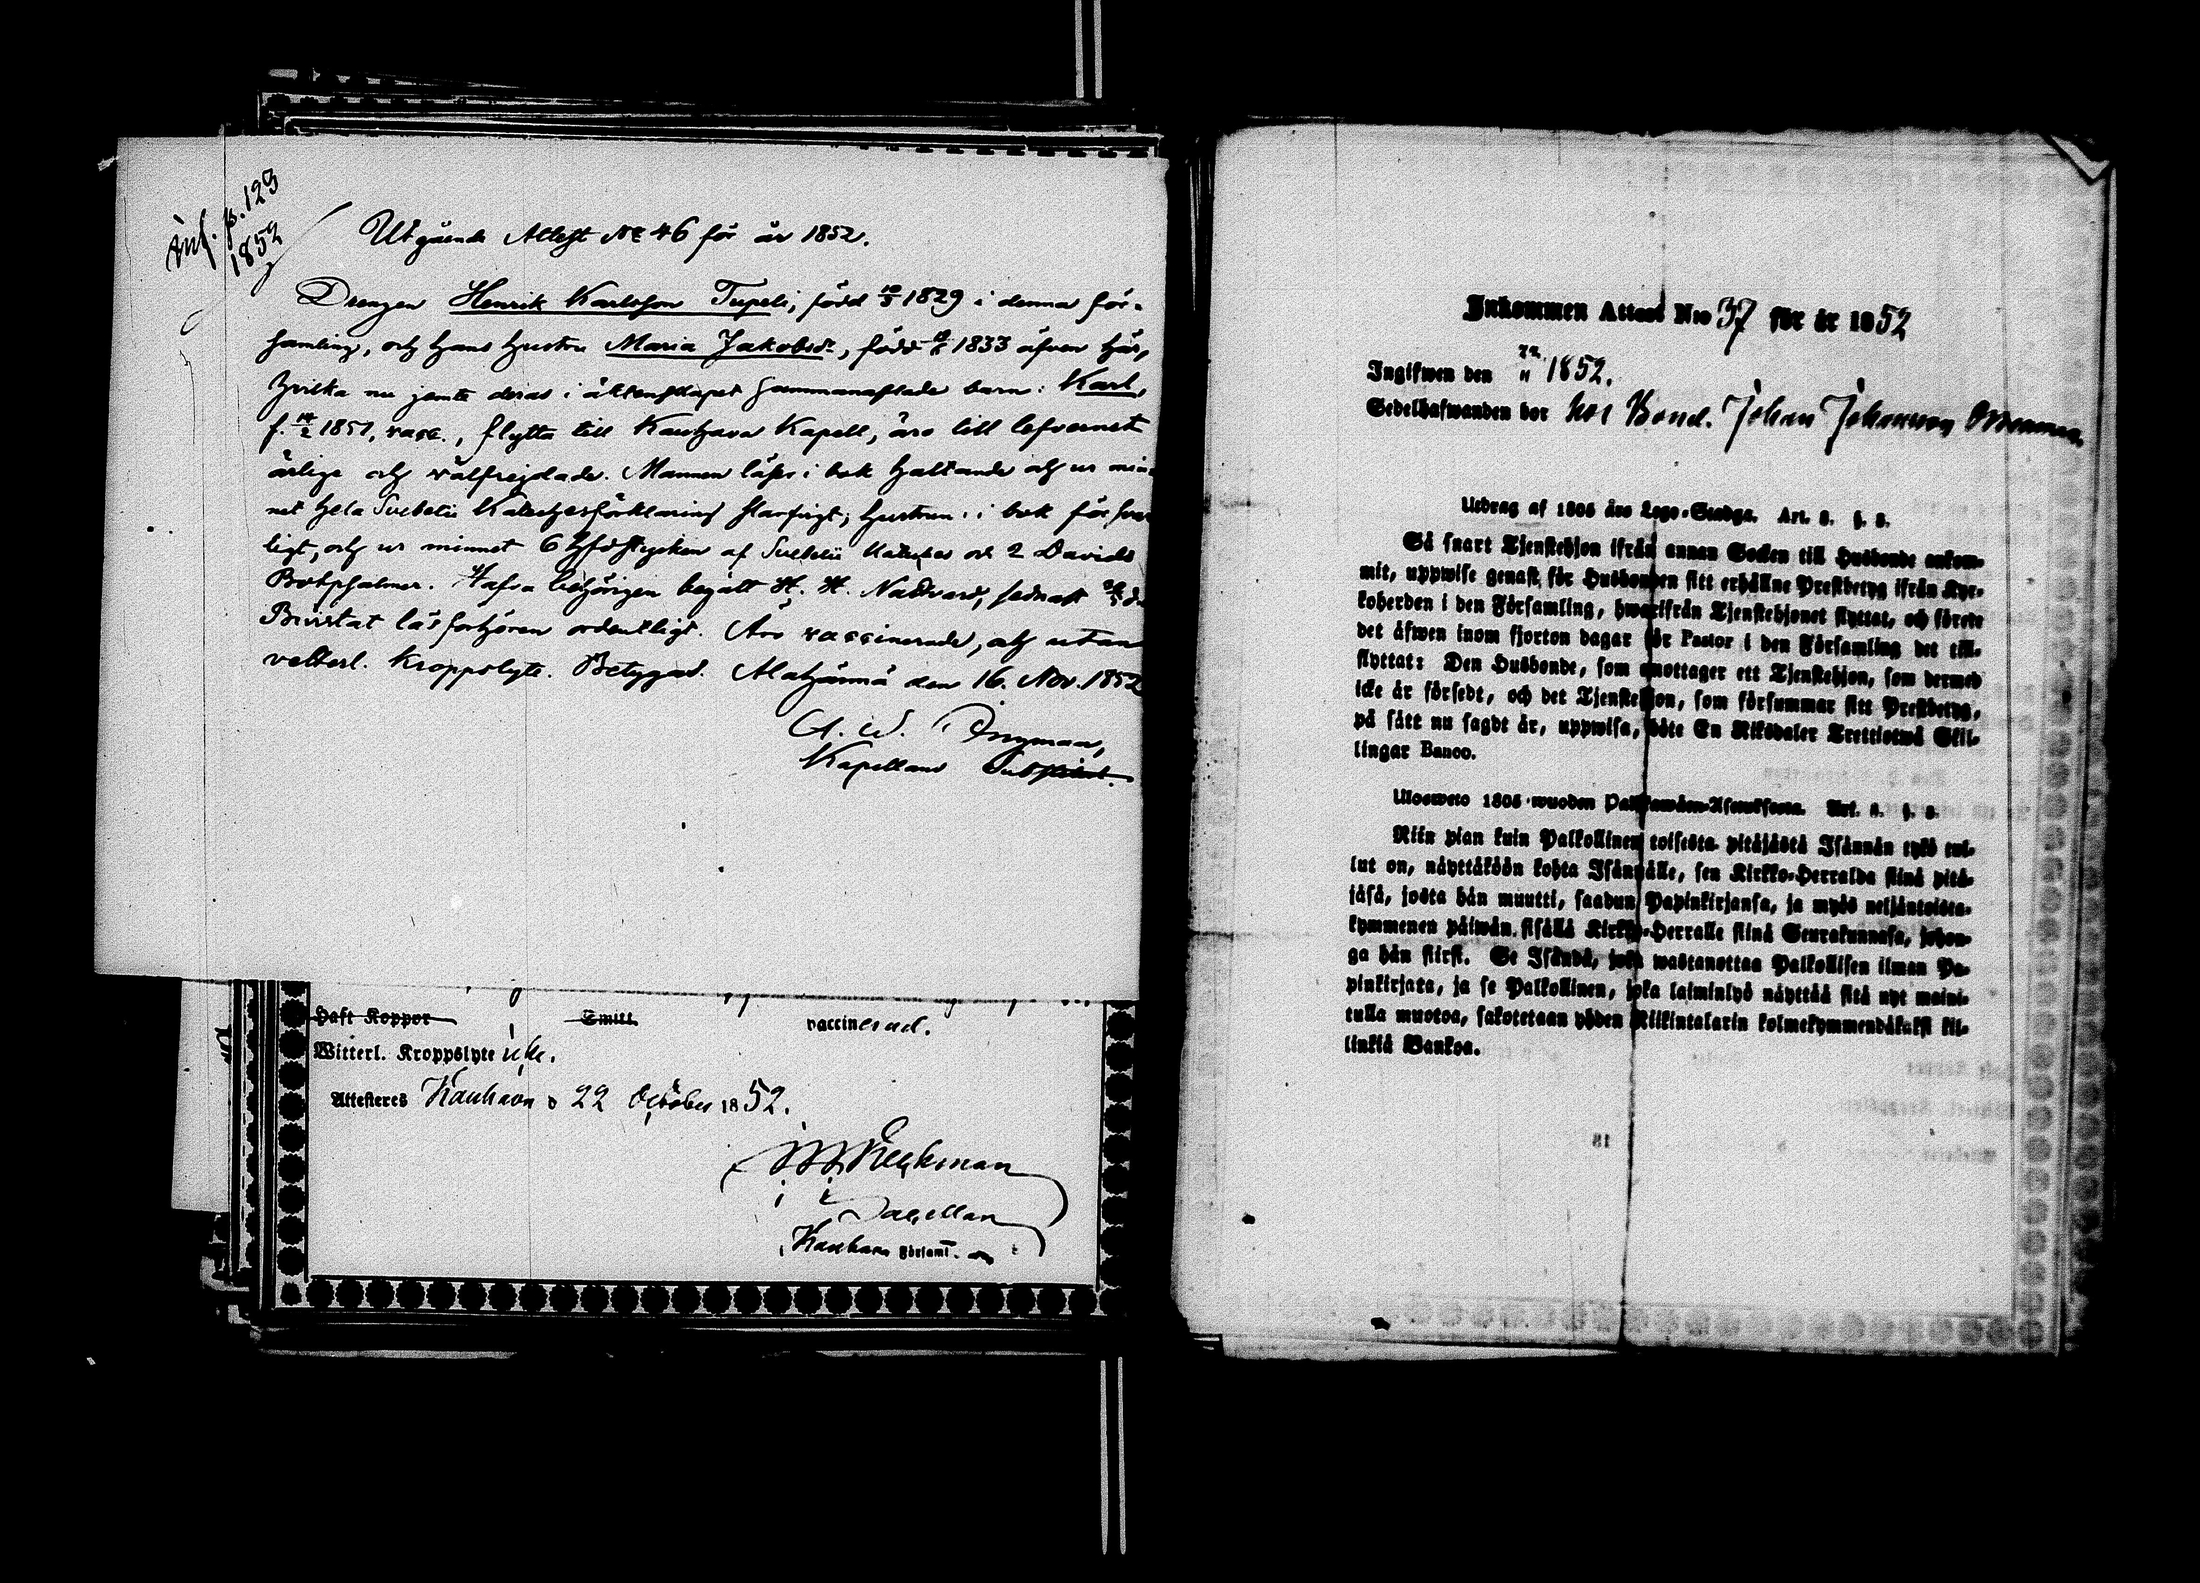 inf. p. 123
1852
Utgående Attest No 46 för år 1852.
Drengen Henrik Karlsson Tupeli, född 1829 i denna för-
samling, och hans hustru Maria Jakobsdr, född 1833 äfven här,
hvilka nu jemte deras i äktenskapet sammanaflade barn: Karl,
f. 1851, vacc., flytta till Kauhava Kapell, äro till lefvernet
ärlige och välfrejdade. Mannen läser i bok hållande och ur min-
net hela Svebelii Katechesförklaring ; hustrun i bok för svar
ligt, och ur minnet 6 Hfdstycken af Svebelii Kateches och 2 Davids
Botpsalmer. Hafva behörigen begått H. H. Nattvard, sednast
Bivistat läsförhören ordentligt. Äro vaccinerade, och utan
vetterl. Kroppslyte. Betygad. Alahärmä den 16. Nov. 1852
A. W.
Kapellans
Haft Koppor Smitt vaccinerad.
Witterl. Kroppslyte icke.
Attesteras Kauhava d 22 October 1852.
Kapellan
Kauhava Församl.
Inkommen Attest N:o 37 för år 1852
Ingifwen den 22/11 1852.
Sedelhafwanden bor hos Bond. Johan Johansson
Utdrag af 1805 års Lego-Stadga. Art. 3. §. 8.
Så snart Tjenstehjon ifrån annan Socken till Husbonde ankom-
mit, uppwise genast för Husbonden sitt erhållne Prestbetyg ifrån Kyr-
koherden i den Församling, hwarifrån Tjenstehjonet flyttat, och förete
det äfwen inom fjorton dagar för Pastor i den Församling det till-
flyttat: Den Husbonde, som emottager ett Tjenstehjon, som dermed
icke är försedt, och det Tjenstehjon, som försummar sitt Prestbetyg,
på sätt nu sagdt är, uppwisa, böte En Riksdaler Trettiotwå Skil-
lingar Banco.
Ulosweto 1805 wuoden Palkkawäen-Asetuksesta. Art. 3. §. 8.
Niin pian kuin Palkollinen toisesta pitäjästä Isännän tykö tul-
lut on, näyttäköön kohta Isännälle, sen Kirkko-Herralda siinä pitä-
jäsä, josta hän muutti, saadun Papinkirjansa, ja myös neljäntoista-
kymmenen päiwän sisällä Kirkko-Herralle siinä Seurakunnasa, johon-
ga hän siirsi. Se Isändä, joka wastanottaa Palkollisen ilman Pa-
pinkirjata, ja se Palkollinen, joka laiminlyö näyttää sitä nyt maini-
tulla muotoa, sakotetaan yhden Riikintalarin kolmekymmendäkaksi kil-
linkiä Bankoa.